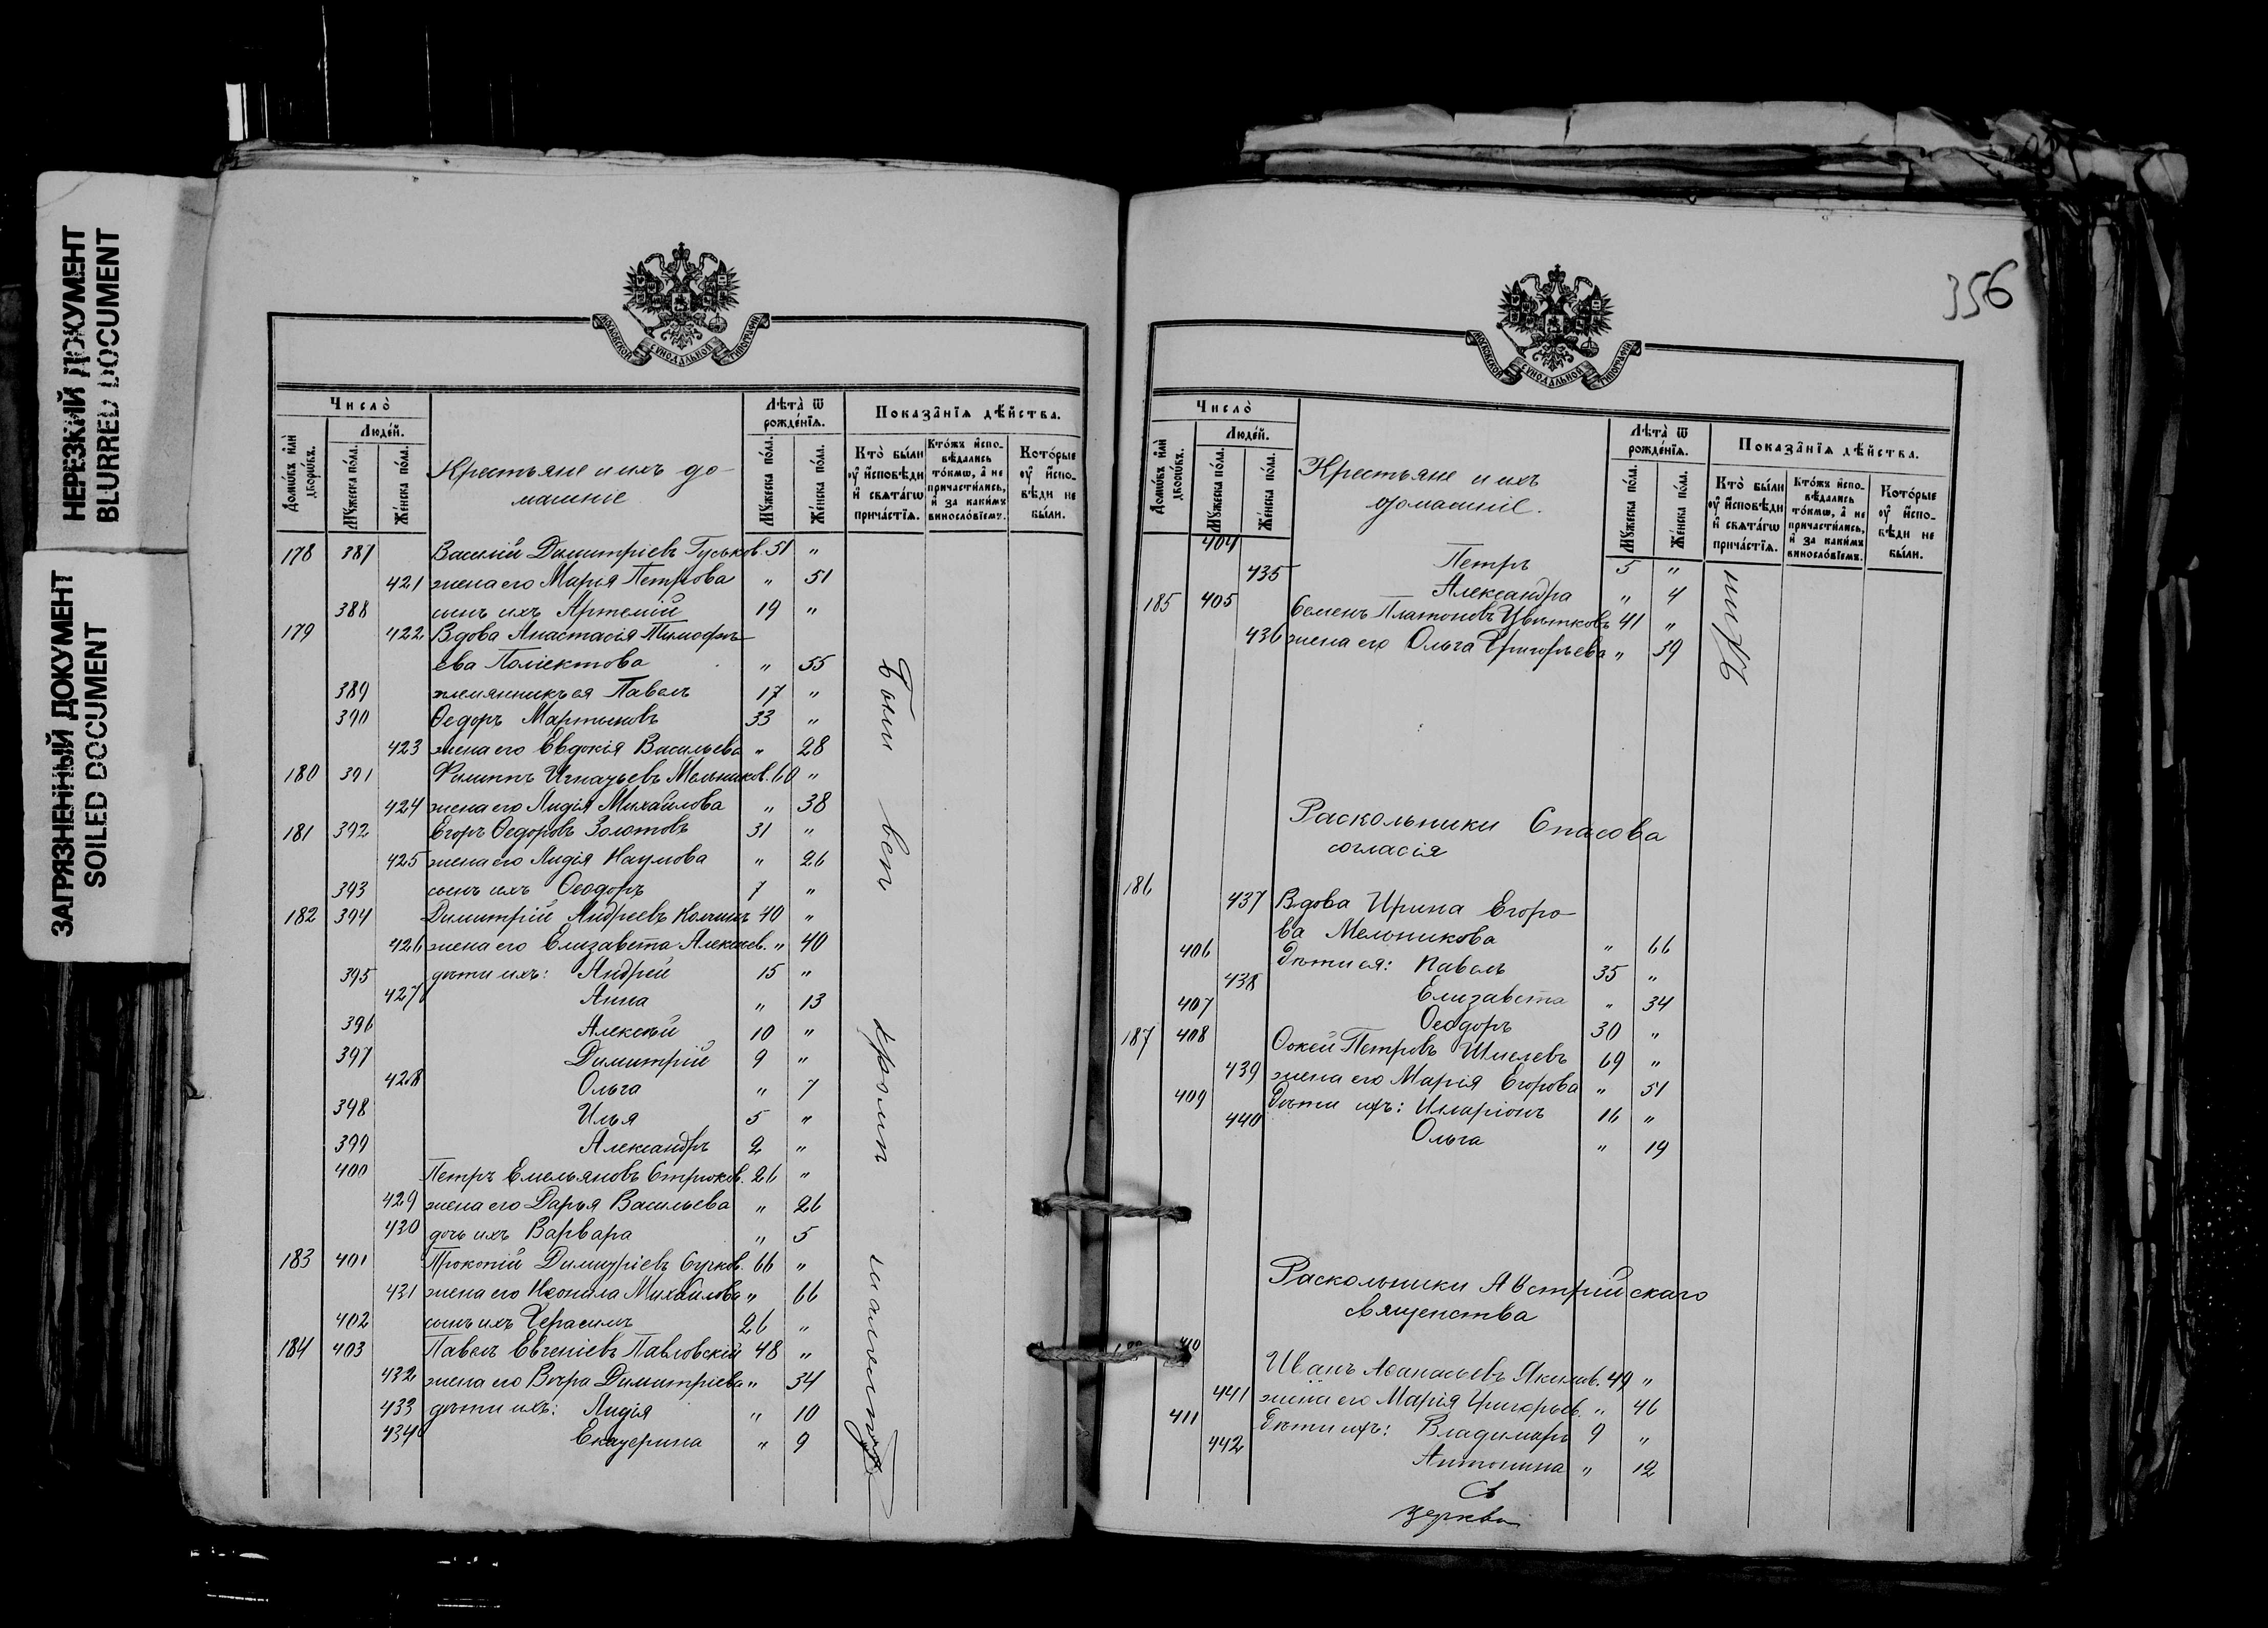 НЕРЕЗКИЙ ДОКУМЕНТ
BLURRED DOCUMENT
ЗАГРЯЗНЕННЫЙ ДОКУМЕНТ
SOILED DOCUMENT
МОСКОВСКОЙ СѴНОДАЛЬНОЙ ТИПОГРАФІИ
Число̀
Людéй.
Домѡ́въ и҆лѝ дворѡ́въ.
Мꙋ́жеска по́ла.
Же́нска по́ла.
Крестьяне и ихъ до-
машніе
Лѣта̀ ѿ рожде́нїѧ.
Мꙋ́жеска по́ла.
Же́нска по́ла.
Показа̑нїѧ дѣ́йства.
Кто̀ бы́ли оу҆ и҆сповѣди и҆ свѧта́гѡ прича́стїѧ.
Кто́жъ и҆спо-вѣдались то́кмѡ, а҆ не причасти́лись, и҆ за каки́мъ винослóвїемъ.
Кото́рые оу҆ и҆спо-вѣди не бы́ли.
178 387 Василій Димитріевъ Гуськов. 51 "
421 жена его Марья Петрова " 51
388 сынъ ихъ Артемій 19 "
179 422 Вдова Анастасія Тимофѣ-
ева Поліектова " 55
389 племянникъ ея Павелъ 17 "
390 Ѳедоръ Мартыновъ 33 "
423 жена его Евдокія Васильева " 28
180 391 Филиппъ Игнатьевъ Мельников. 60 "
424 жена его Лидія Михайлова " 38
181 392 Егоръ Ѳедоровъ Золотовъ 31 "
425 жена его Лидія Наумова " 26
393 сынъ ихъ Ѳеодоръ 7 "
182 394 Димитрій Андреевъ 40 "
426 жена его Елизавета Алексѣев. " 40
395 дѣти ихъ: Андрей 15 "
427 Анна " 13
396 Алексѣй 10 "
397 Димитрій 9 "
428 Ольга " 7
398 Илья 5 "
399 Александръ 2 "
400 Петръ Емельяновъ Стрюков. 26 "
429 жена его Дарья Васильева " 26
430 дочь ихъ Варвара " 5
183 401 Прокопій Димитріевъ Сучков. 66 "
431 жена его Неонила Михайлова " 66
402 сынъ ихъ Герасимъ 26 "
184 403 Павелъ Евгеніевъ Павловскій 48 "
432 жена его Вѣра Димитріева " 34
433 дѣти ихъ: Лидія " 10
434 Екатерина " 9
Были всѣ кромѣ малолѣт
356
МОСКОВСКОЙ СѴНОДАЛЬНОЙ ТИПОГРАФІИ
Число̀
Людéй.
Домѡ́въ и҆лѝ дворѡ́въ.
Мꙋ́жеска по́ла.
Же́нска по́ла.
Крестьяне и ихъ
домашніе.
Лѣта̀ ѿ рожде́нїѧ.
Мꙋ́жеска по́ла.
Же́нска по́ла.
Показа̑нїѧ дѣ́йства.
Кто̀ бы́ли оу҆ и҆сповѣди и҆ свѧта́гѡ прича́стїѧ.
Кто́жъ и҆спо-вѣдались то́кмѡ, а҆ не причасти́лись, и҆ за каки́мъ винослóвїемъ.
Кото́рые оу҆ и҆спо-вѣди не бы́ли.
404 Петръ 5 "
435 Александра " 4
185 405 Семенъ Платоновъ Цвѣтковъ 41 "
436 жена его Ольга Григорьева " 39
Раскольники Спасова
согласія
186 437 Вдова Ирина Егоро-
ва Мельникова " 66
406 Дѣти ея: Павелъ 35 "
438 Елизавета " 34
407 Ѳеодоръ 30 "
187 408 Ѳокей Петровъ Шмелевъ 69 "
439 жена его Марія Егорова " 51
409 Дѣти ихъ: Иларіонъ 16 "
440 Ольга " 19
Раскольники Австрійскаго
священства
410 Иванъ Аѳанасьевъ Якимов. 49 "
441 жена его Марія Григорьев. " 46
411 Дѣти ихъ: Владимиръ 9 "
442 Антонина " 12
Св
церкви